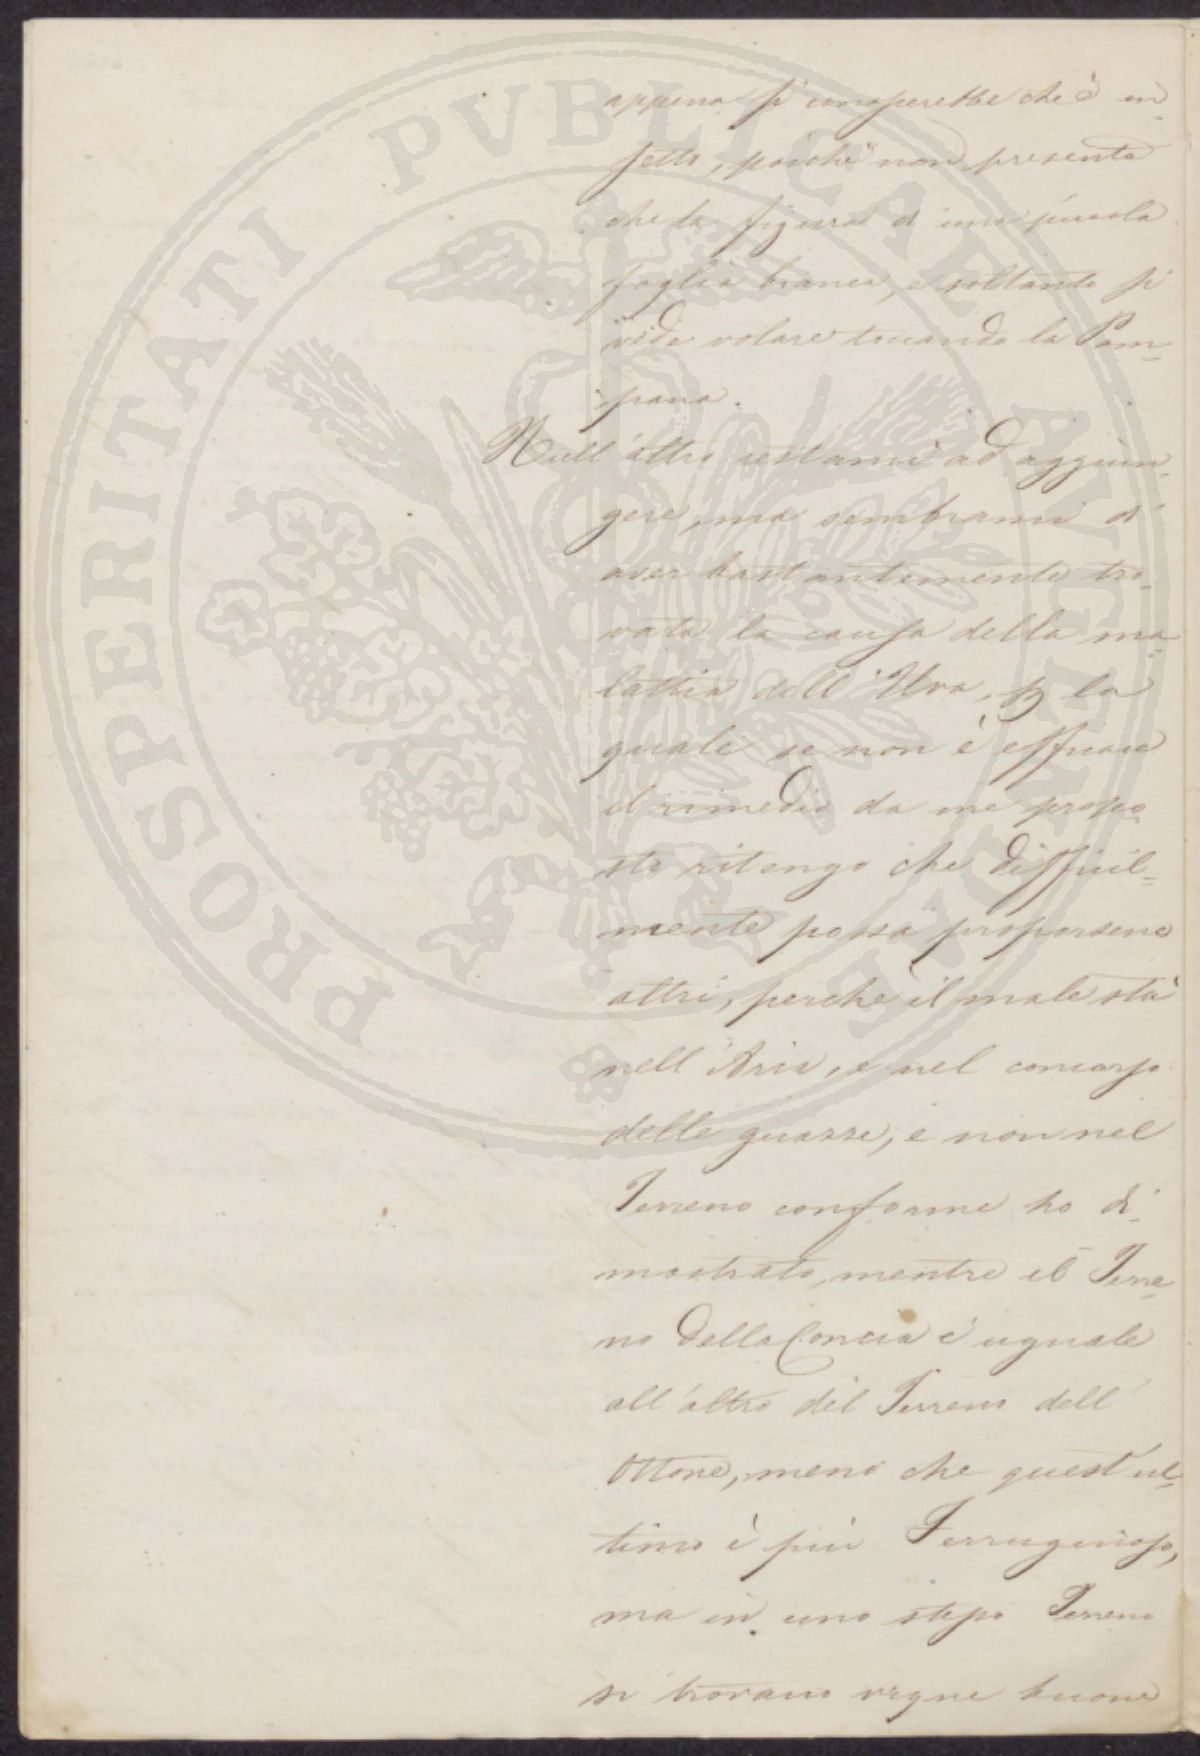 PROSPERITATI PVBLICAE AVGENDAE
appena si conoscerebbe che è in
setto, poichè non presenta
che la figura di una piccola
foglia bianca, e soltanto si
vede volare toccando la Pam-
pana.
Null'altro restami ad aggiun-
gere, ma sembrami di
aver bastantemente tro-
vata la causa della ma-
lattia dell'Uva, p la
quale se non è efficace
il rimedio da me propo-
sto ritengo che diffiicil-
mente possa proporsene
altri, perchè il male stà
nell'Aria, e nel concorso
delle guazze, e non nel
Terreno conforme ho di-
mostrato, mentre il Terre-
no della Concia è uguale
all'altro del Terreno dell'
Ottone, meno che quest'ul-
timo è più Ferruginoso,
ma in uno stesso Terreno
si trovano vigne buone